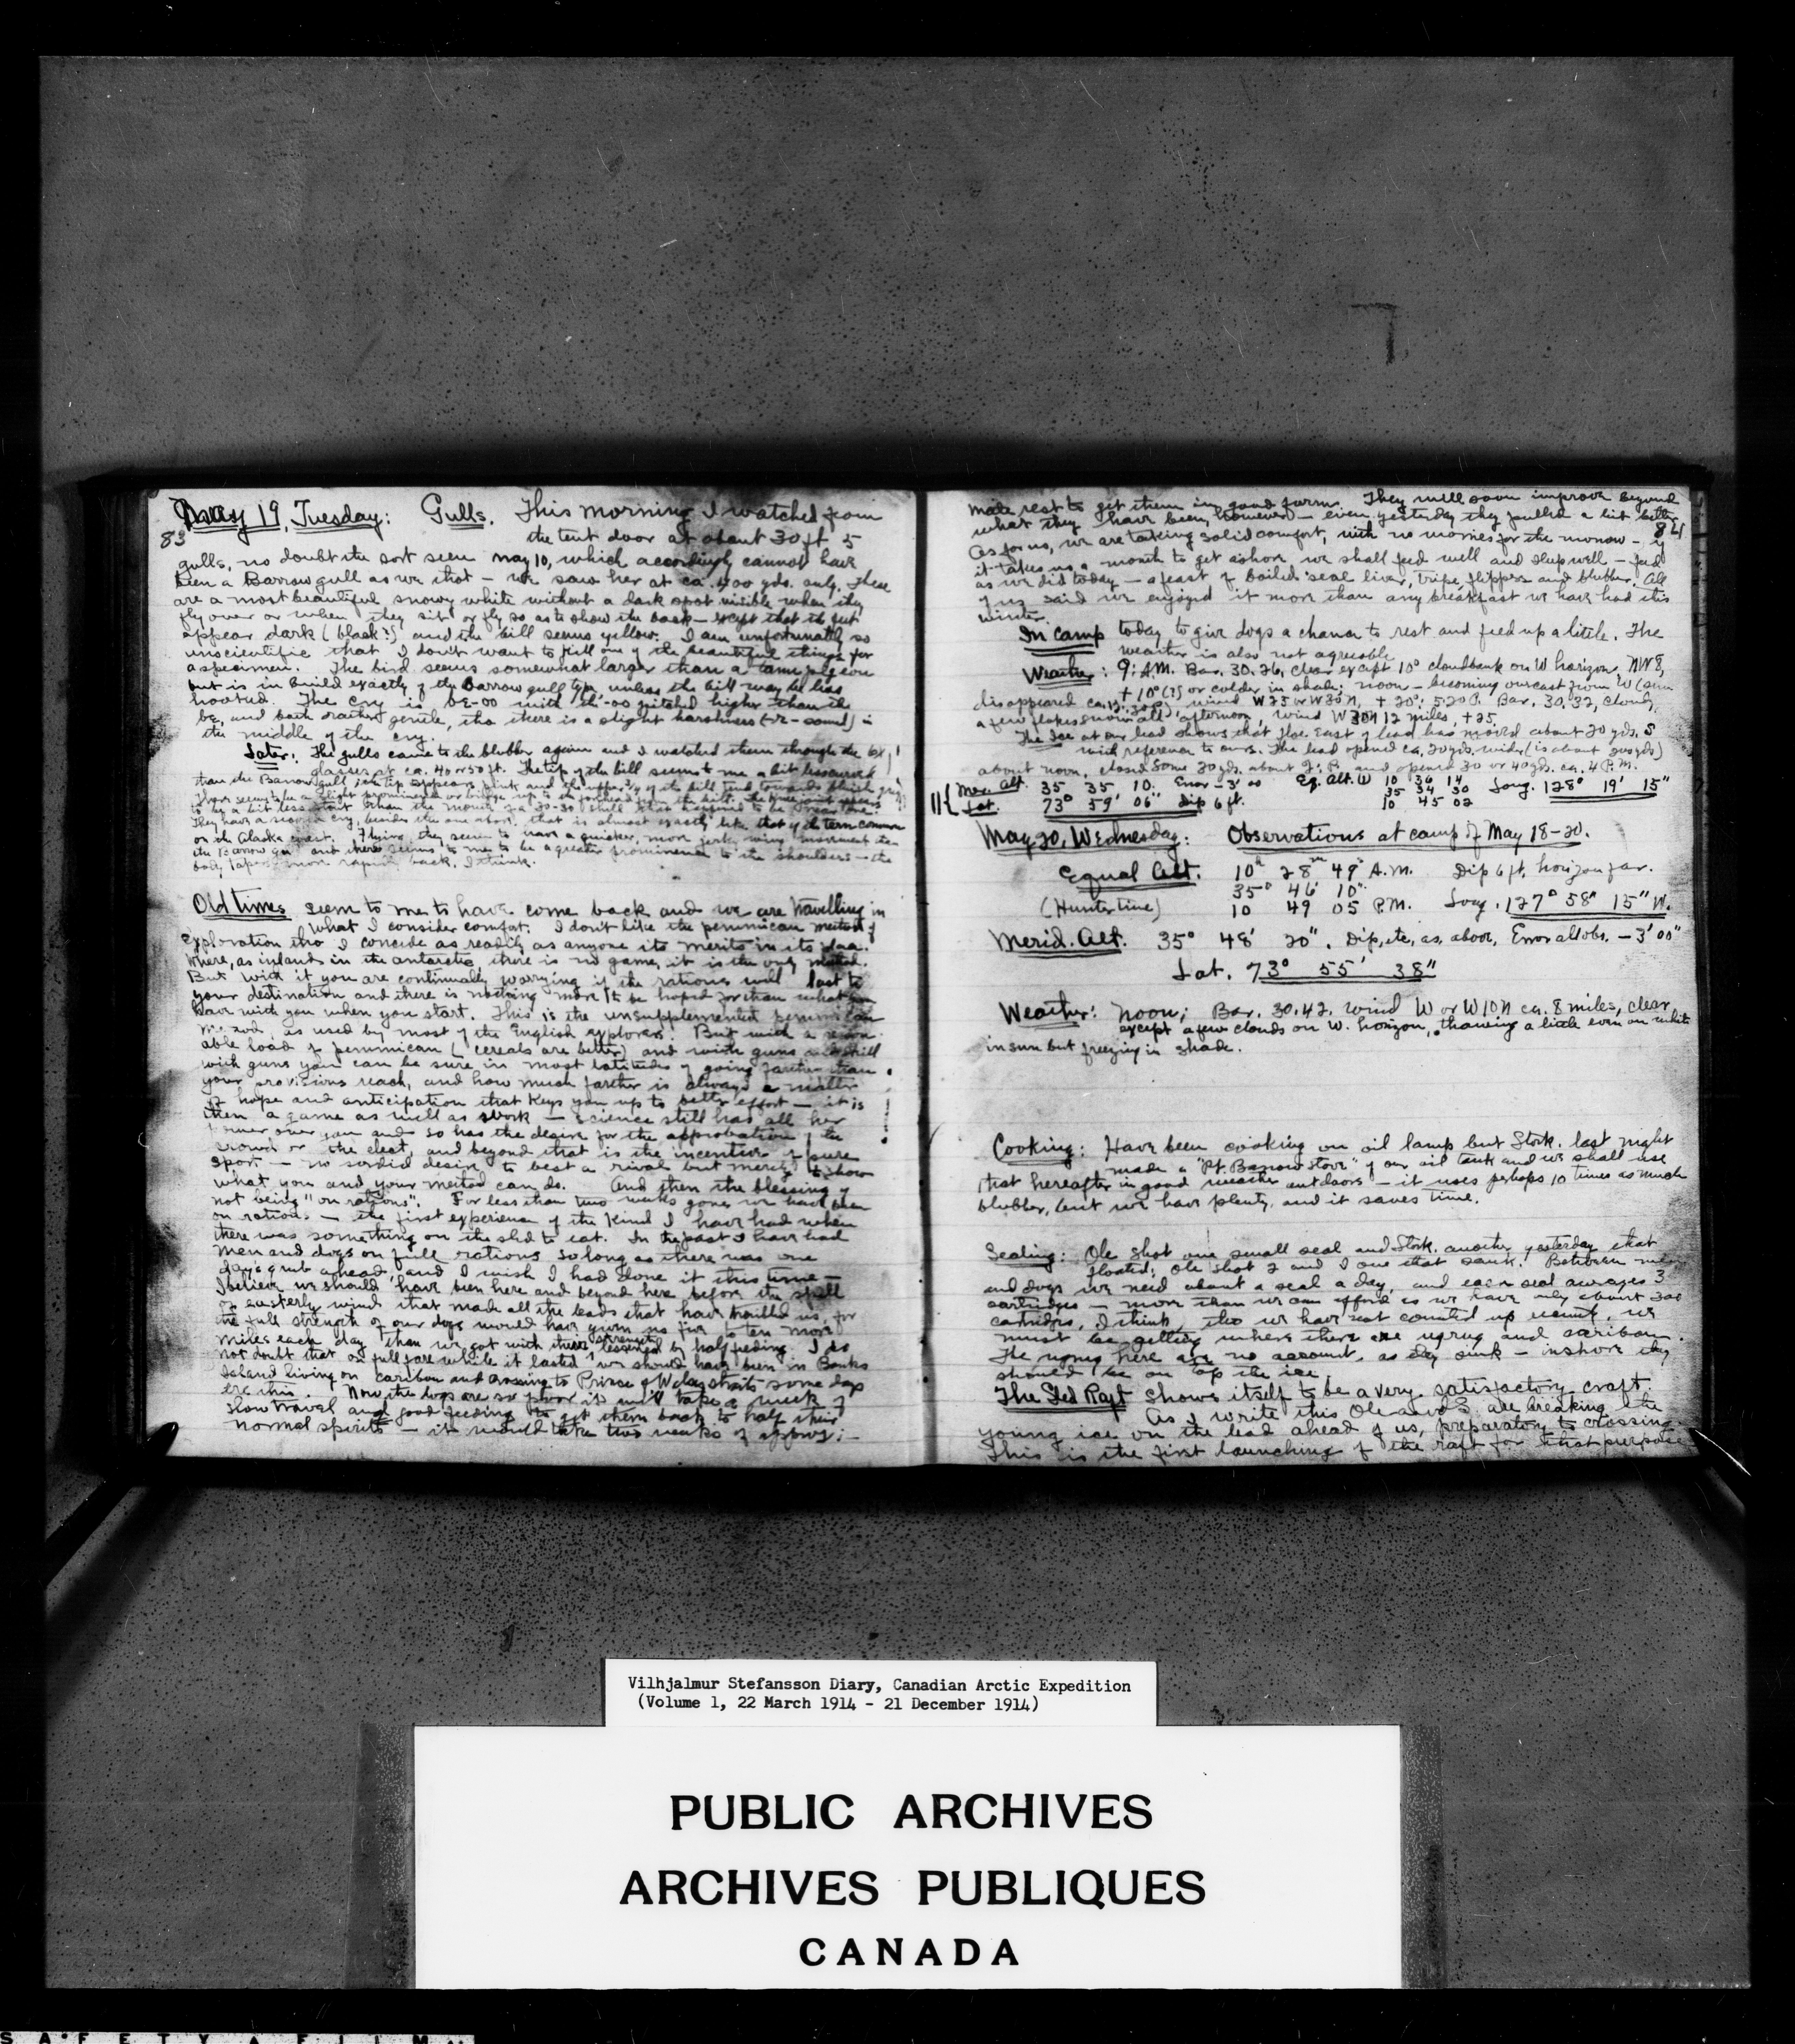 May 19, Tuesday: Gulls. This morning I watched from
83 the tent door at about 30 ft 5
gulls, no doubt the sort seen May 10, which accordingly cannot have
been a Barrow gull as we that - we saw her at ca. 400 yds. only. These
are a most beautiful snowy white without a dark spot visible when they
fly over or when they sit or fly so as to show the back - except that the feet
appear dark (black?) and the bill seems yellow. I am unfortunately so
unscientific that I don't want to kill one of the beautiful things for
a specimen. The bird seems somewhat larger than a tame pigeon
but is in build exactly of the Barrow gull type, unless the bill may be less
hooked. The cry is be-oo with the -oo pitched higher than the
be, and both rather gentle, tho there is a slight harshness (-r- sound) in
the middle of the cry.
Later: The gulls came to the blubber again and I watched them through the 6x
glasses at ca. 40 or 50 ft. The tip of the bill seems to me a bit less curved
than the Barrow gull its tip appears pink and the upper of the bill tend towards bluish grey
There seems to be a slight prominence or bridge up to the forehead from the bill.
to be a bit less stout than the
They have a second cry, besides the one above, that is almost exactly like that of the tern common
on the Alaska coast. Flying, they seem to have a quicker, more jerky wing movement than
the Barrow gull and there seems to me to be a greater prominence to the shoulders - the
body tapers more rapidly back, I think.
Old times seem to me to have come back and we are travelling in
what I consider comfort. I don't like the pemmican method of
exploration tho I concede as readily as anyone its merits in its place.
Where, as inland in the antarctic there is no game, it is the only method.
But with it you are continually worrying if the rations will last to
your destination and there is nothing more to be hoped for than what you
have with you when you start. This is the unsupplemented pemmican
method, is used by most of the English explorers. But with a reason-
able load of pemmican (cereals are better) and with guns and skill
with guns you can be sure in most latitudes of going farther than
your provisions reach, and how much farther is always a matter
of hope and anticipation that keys you up to better effort - it is
then a game as well as work - science still has all her
power over you and so has the desire for the approbation of the
crowd or the elect, and beyond that is the incentive of pure
sport - no sordid desire to best a rival but merely to show
what you and your method can do. And then the blessing of
not being "on rations". For less than two weeks gone we have been
on rations - the first experience of the kind I have had when
there was something on the sled to eat. In the past I have had
men and dogs on full rations so long as there was one
day's grub ahead and I wish I had done it this time -
I believe we should have been here and beyond here before the spell
of easterly wind that made all the leads that have troubled us, for
the full strength of our dogs would have given us five to ten more
miles each day than we got with their strength lessened by half feeding. I do
not doubt that on full fare while it lasted we should have been in Banks
Island living on caribou and crossing to Prince of Wales straits some days
ere this. Now the dogs are so poor it will take a week of
slow travel and good feeding to get them back to half their
normal spirits - it would take two weeks of approxi-
mate rest to get them in good form. They will soon improve beyond
what they have been, however - even yesterday they pulled a bit better. 84
As for us, we are taking solid comfort, with no worries for the morrow - if
it takes us a month to get ashore we shall feed well and sleep well - feed
as we did today - a feast of boiled seal liver, tripe, flippers and blubber. All
of us said we enjoyed it more than any breakfast we have had this
winter.
In Camp today to give dogs a chance to rest and feed up a little. The
weather is also not agreeable.
Weather: 9: A.M. Bar. 30.26, clear except 10° cloudbank on W horizon, NW 8,
+10° (?) or colder in shade; noon - becoming overcast from W (sun
disappeared ca. 12:30P.) wind W25 or W30N, +20°; 5:20P. Bar. 30.32, cloudy,
a few flakes snow all afternoon, wind W30N 12 miles, +25.
The Ice at our lead shows that floe East of lead has moved about 20 yds. S
with reference to ours. The lead opened ca. 20 yds. wider (is about 200 yds)
about noon, closed some 20 yds. about 2: P. and opened 30 or 40 yds. ca. 4 P.M.
Mer. Alt. 35 35 10. Error -3' 00 Eq. Alt. W 10 36 14 Long. 128° 19' 15"
35 34 30
Lat. 73° 59' 06" Dip 6 ft. 10 45 02
May 20, Wednesday: Observations at camp of May 18-20.
Equal Alt. 10h 28m 49s A.M. Dip 6 ft. horizon far.
35° 46' 10"
(Hunter time) 10 49 05 P.M. Long. 127° 58" 15" W.
Merid. Alt. 35° 48' 20". Dip, etc, as above, Error all obs. - 3' 00"
Lat. 73° 55' 38"
Weather: Noon; Bar. 30.42. wind W or W10N ca. 8 miles, clear
except a few clouds on W. horizon, thawing a little even on white
in sun but freezing in shade.
Cooking: Have been cooking on oil lamp but Stork. last night
made a "Pt. Barrow Stove" of our oil tank and we shall use
that hereafter in good weather outdoors - it uses perhaps 10 times as much
blubber, but we have plenty, and it saves time.
Sealing: Ole shot one small seal and Stork. another yesterday that
floated; Ole shot 2 and I one that sank. Between men
and dogs we need about a seal a day, and each seal averages 3
cartridges - more than we can afford as we have only about 300
cartridges, I think, tho we have not counted up recently. We
must be getting where there are ugrug and caribou.
The ugrug here are no account, as they sink - inshore they
should be on top the ice.
The Sled Raft shows itself to be a very satisfactory craft.
As I write this Ole and S. are breaking the
young ice on the lead ahead of us, preparatory to crossing.
This is the first launching of the raft for that purpose
Vilhjalmur Stefansson Diary, Canadian Arctic Expedition
(Volume 1, 22 March 1914 - 21 December 1914)
PUBLIC ARCHIVES
ARCHIVES PUBLIQUES
CANADA
SAFETY FILM